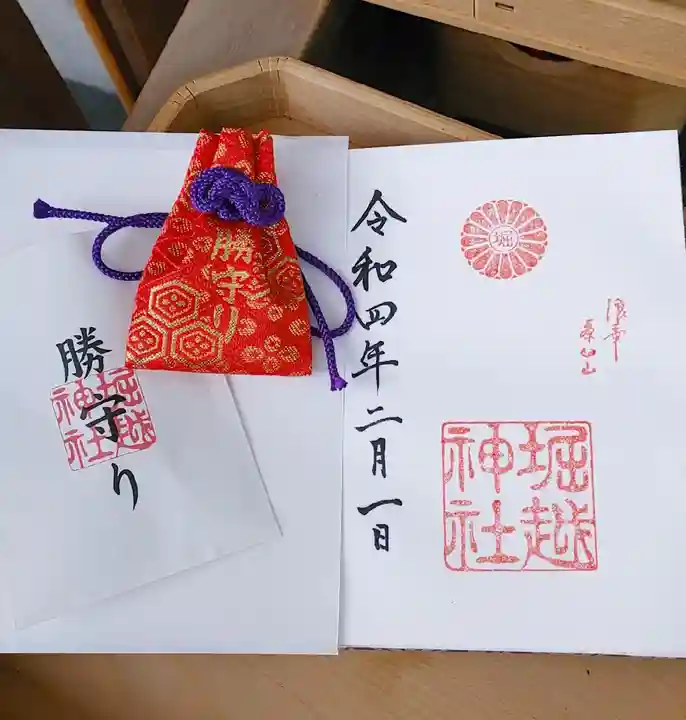 勝守り
勝守り
堀越
神社
令和四年二月一日
堀
堀越
神社